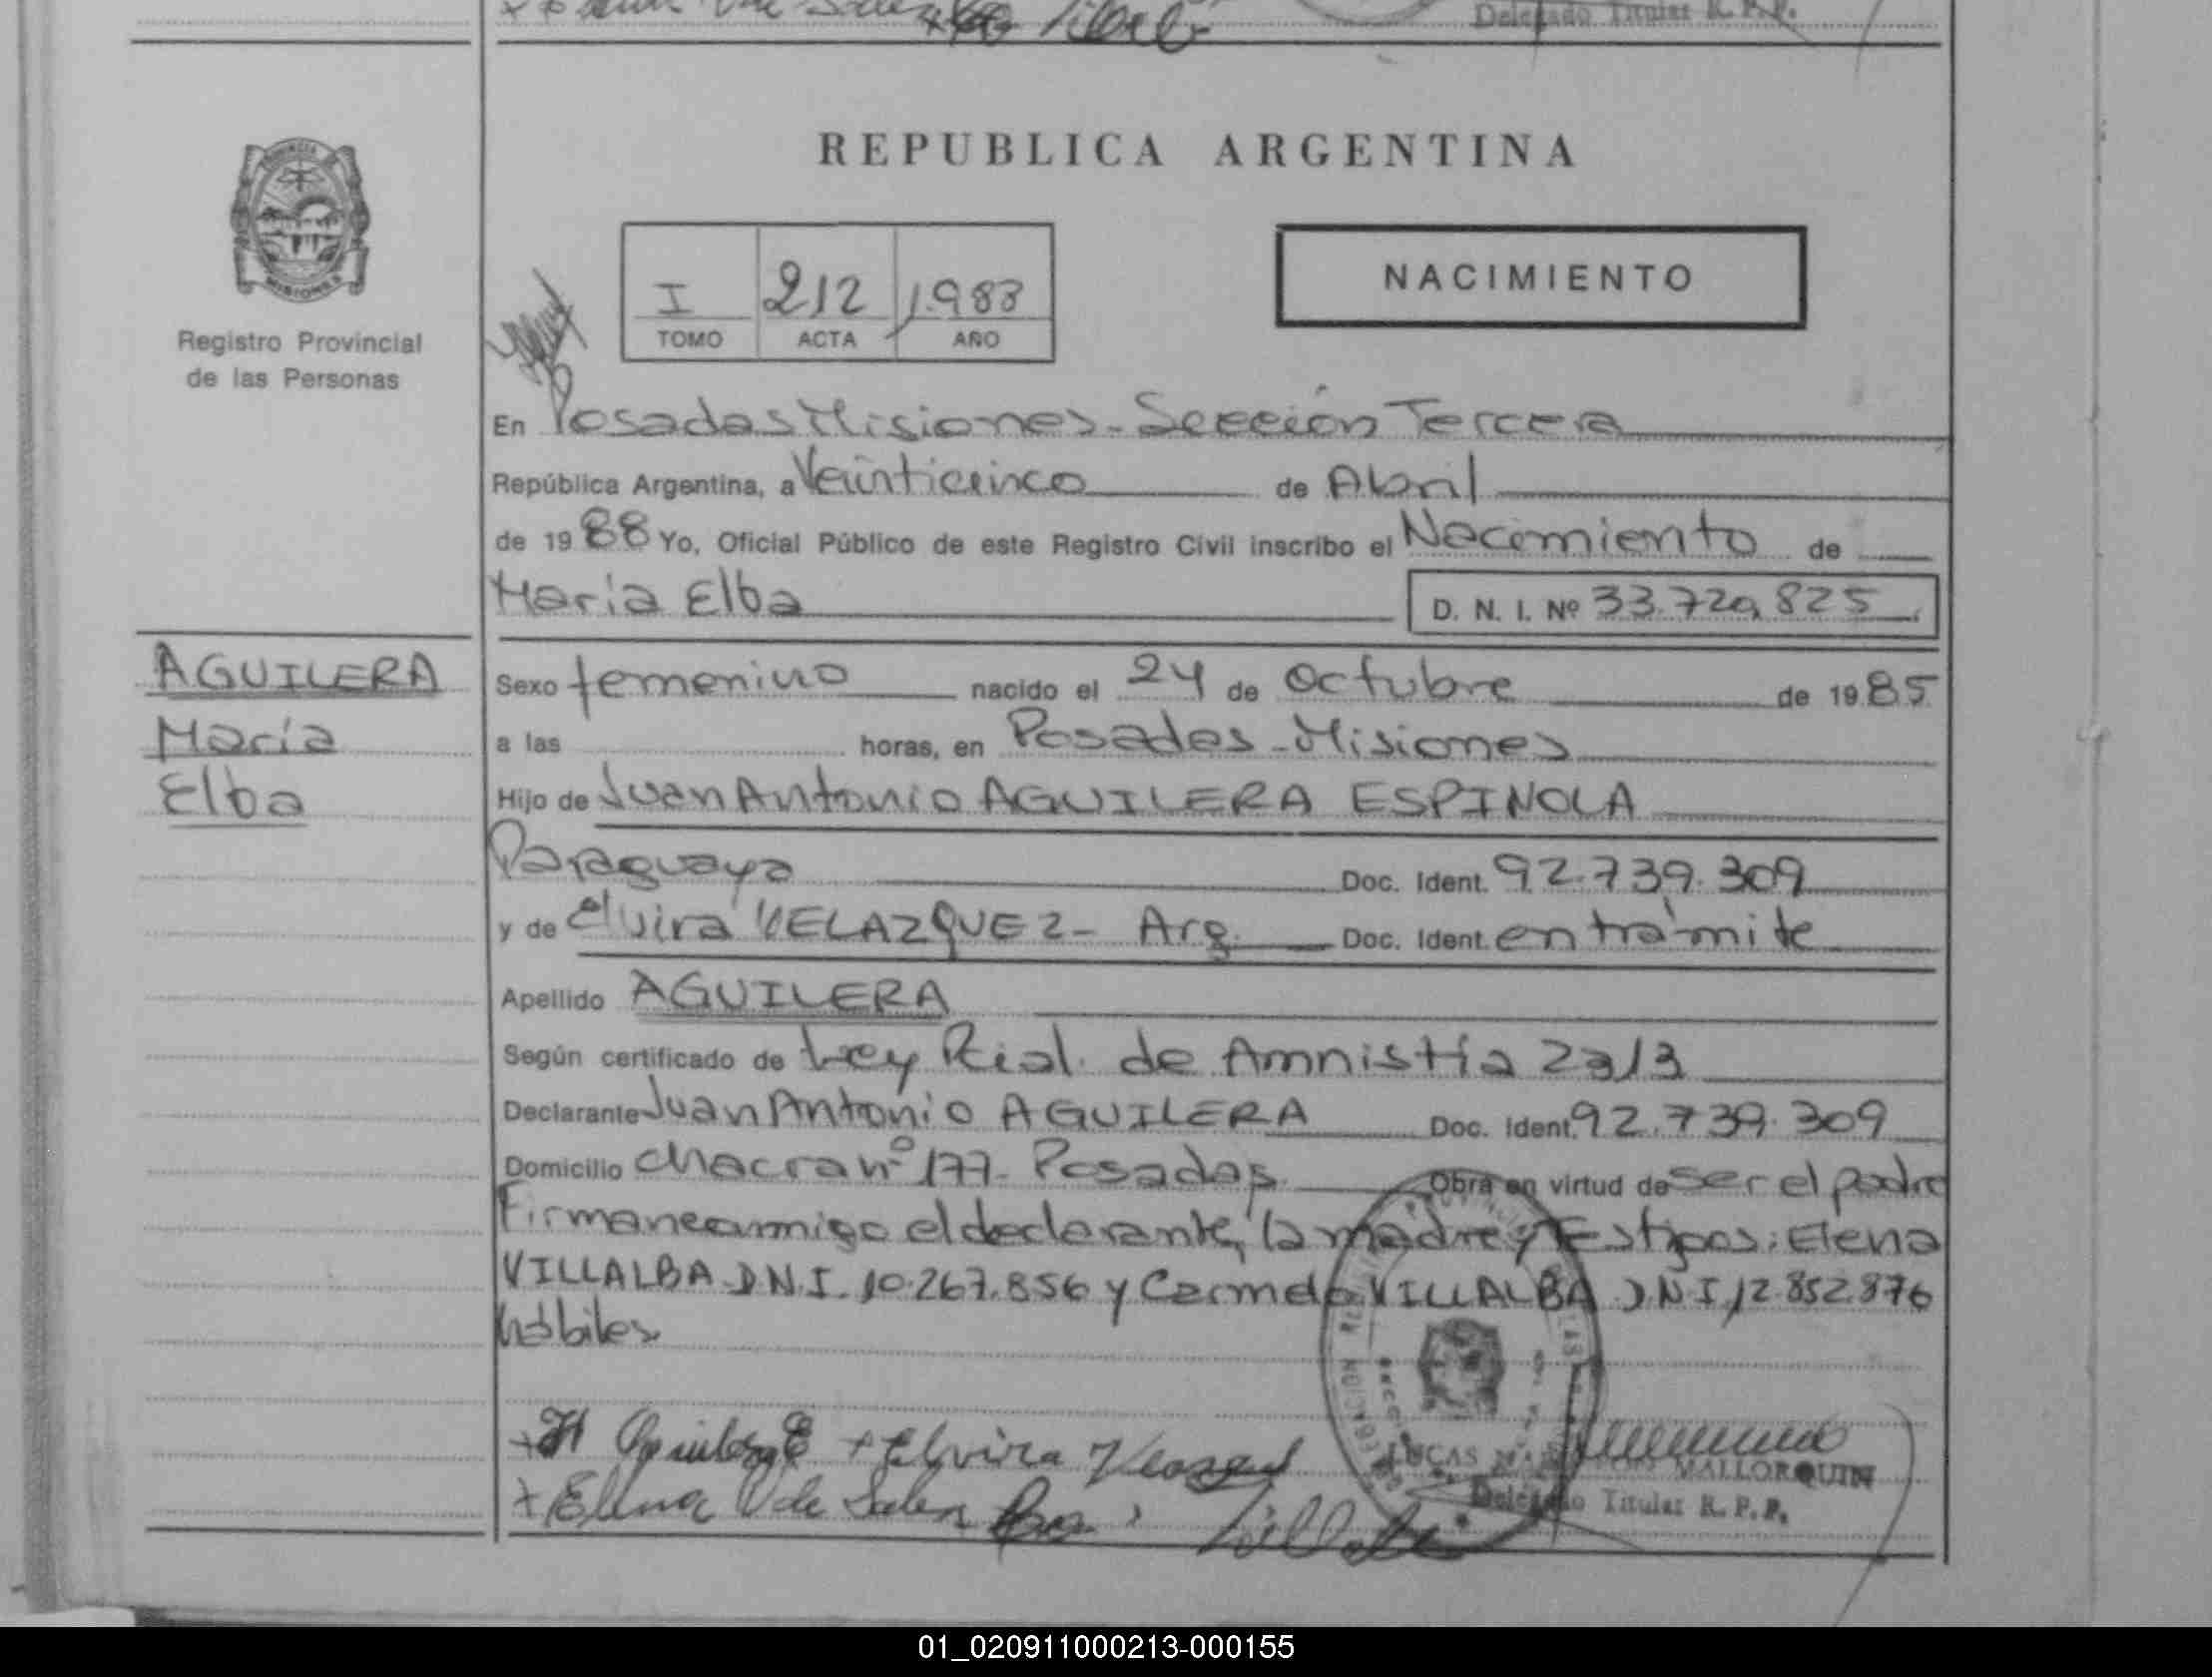 Delegado Titular R. P. P.
PROVINCIA
MISIONES
Registro Provincial
de las Personas
REPUBLICA ARGENTINA
I 212 1.988
TOMO ACTA AÑO
NACIMIENTO
En Posadas Misiones - Sección Tercera
República Argentina, a Veinticinco de Abril
de 19 88 Yo, Oficial Público de este Registro Civil inscribo el Nacimiento de
María Elba D. N. I. Nº 33.720.825
AGUILERA
María
Elba
Sexo femenino nacido el 24 de Octubre de 19 85
a las horas, en Posadas - Misiones
Hijo de Juan Antonio AGUILERA ESPINOLA
Paraguaya Doc. Ident. 92.739.309
y de Elvira VELAZQUEZ - Arg. Doc. Ident. en trámite
Apellido AGUILERA
Según certificado de Ley Pcial. de Amnistía
Declarante Juan Antonio AGUILERA Doc. Ident. 92.739.309
Domicilio chacra nº 177 - Posadas Obra en virtud de ser el padre
Firman conmigo el declarante, la madre y Testigos: Elena
VILLALBA D.N.I. 10.267.856 y Carmelo VILLALBA D.N.I. 12.852.876
hábiles
Elvira
Elena V de
LUCAS MALLORQUIN
Delegado Titular R. P. P.
01_020911000213-000155